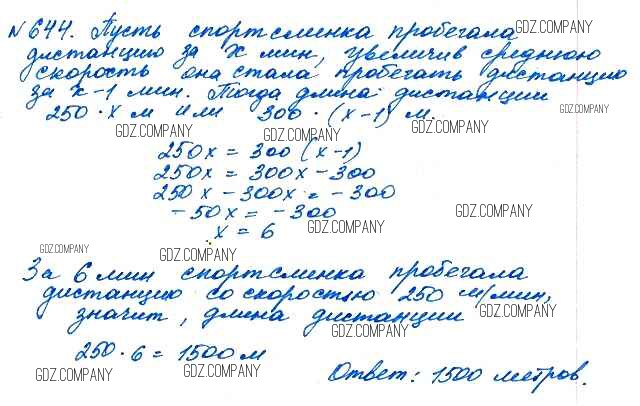 №644. Пусть спортсменка пробегала GDZ.COMPANY
дистанцию за x мин, увеличив среднюю
скорость она стала пробегать дистанцию
GDZ.COMPANY GDZ.COMPANY
за x-1 мин. Тогда длина дистанции
250 · x м или 300 · (x-1) м. GDZ.COMPANY
GDZ.COMPANY GDZ.COMPANY
250x = 300 (x-1)
250x = 300x - 300
250x - 300x = -300
-50x = -300 GDZ.COMPANY
x = 6 GDZ.COMPANY
GDZ.COMPANY GDZ.COMPANY
За 6 мин спортсменка пробегала
GDZ.COMPANY
дистанцию со скоростью 250 м/мин,
значит, длина дистанции GDZ.COMPANY
GDZ.COMPANY
250 · 6 = 1500 м
GDZ.COMPANY GDZ.COMPANY
Ответ: 1500 метров.
GDZ.COMPANY